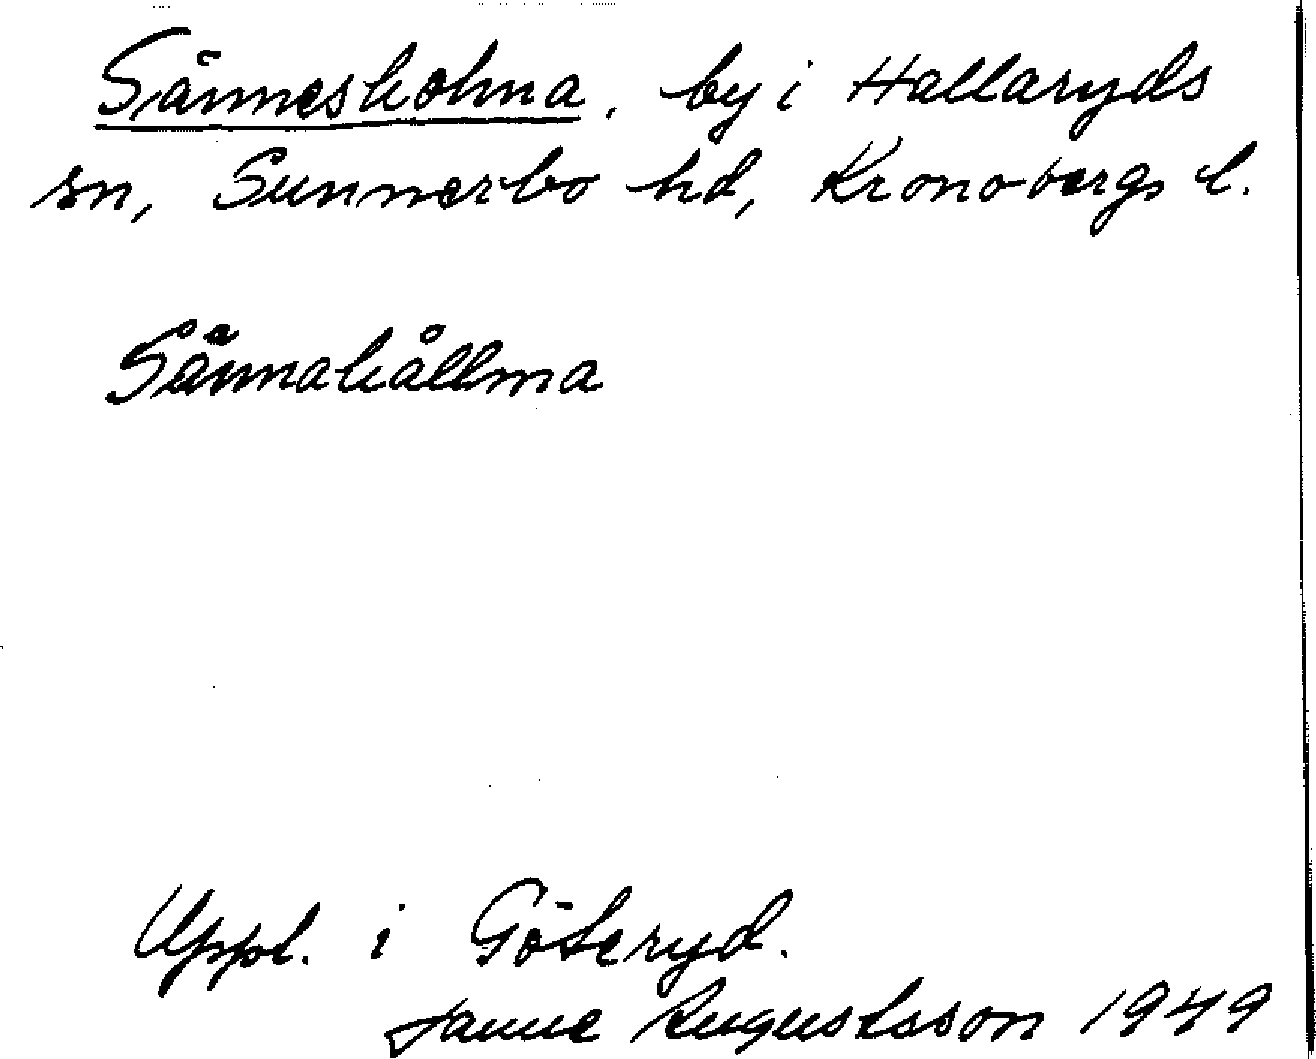 Sännesholma, by i Hallaryds
sn, Sunnerbo hd, Kronobergs l.
Sännahållma
Uppt. i Göteryd.
Janne Augustsson 1949